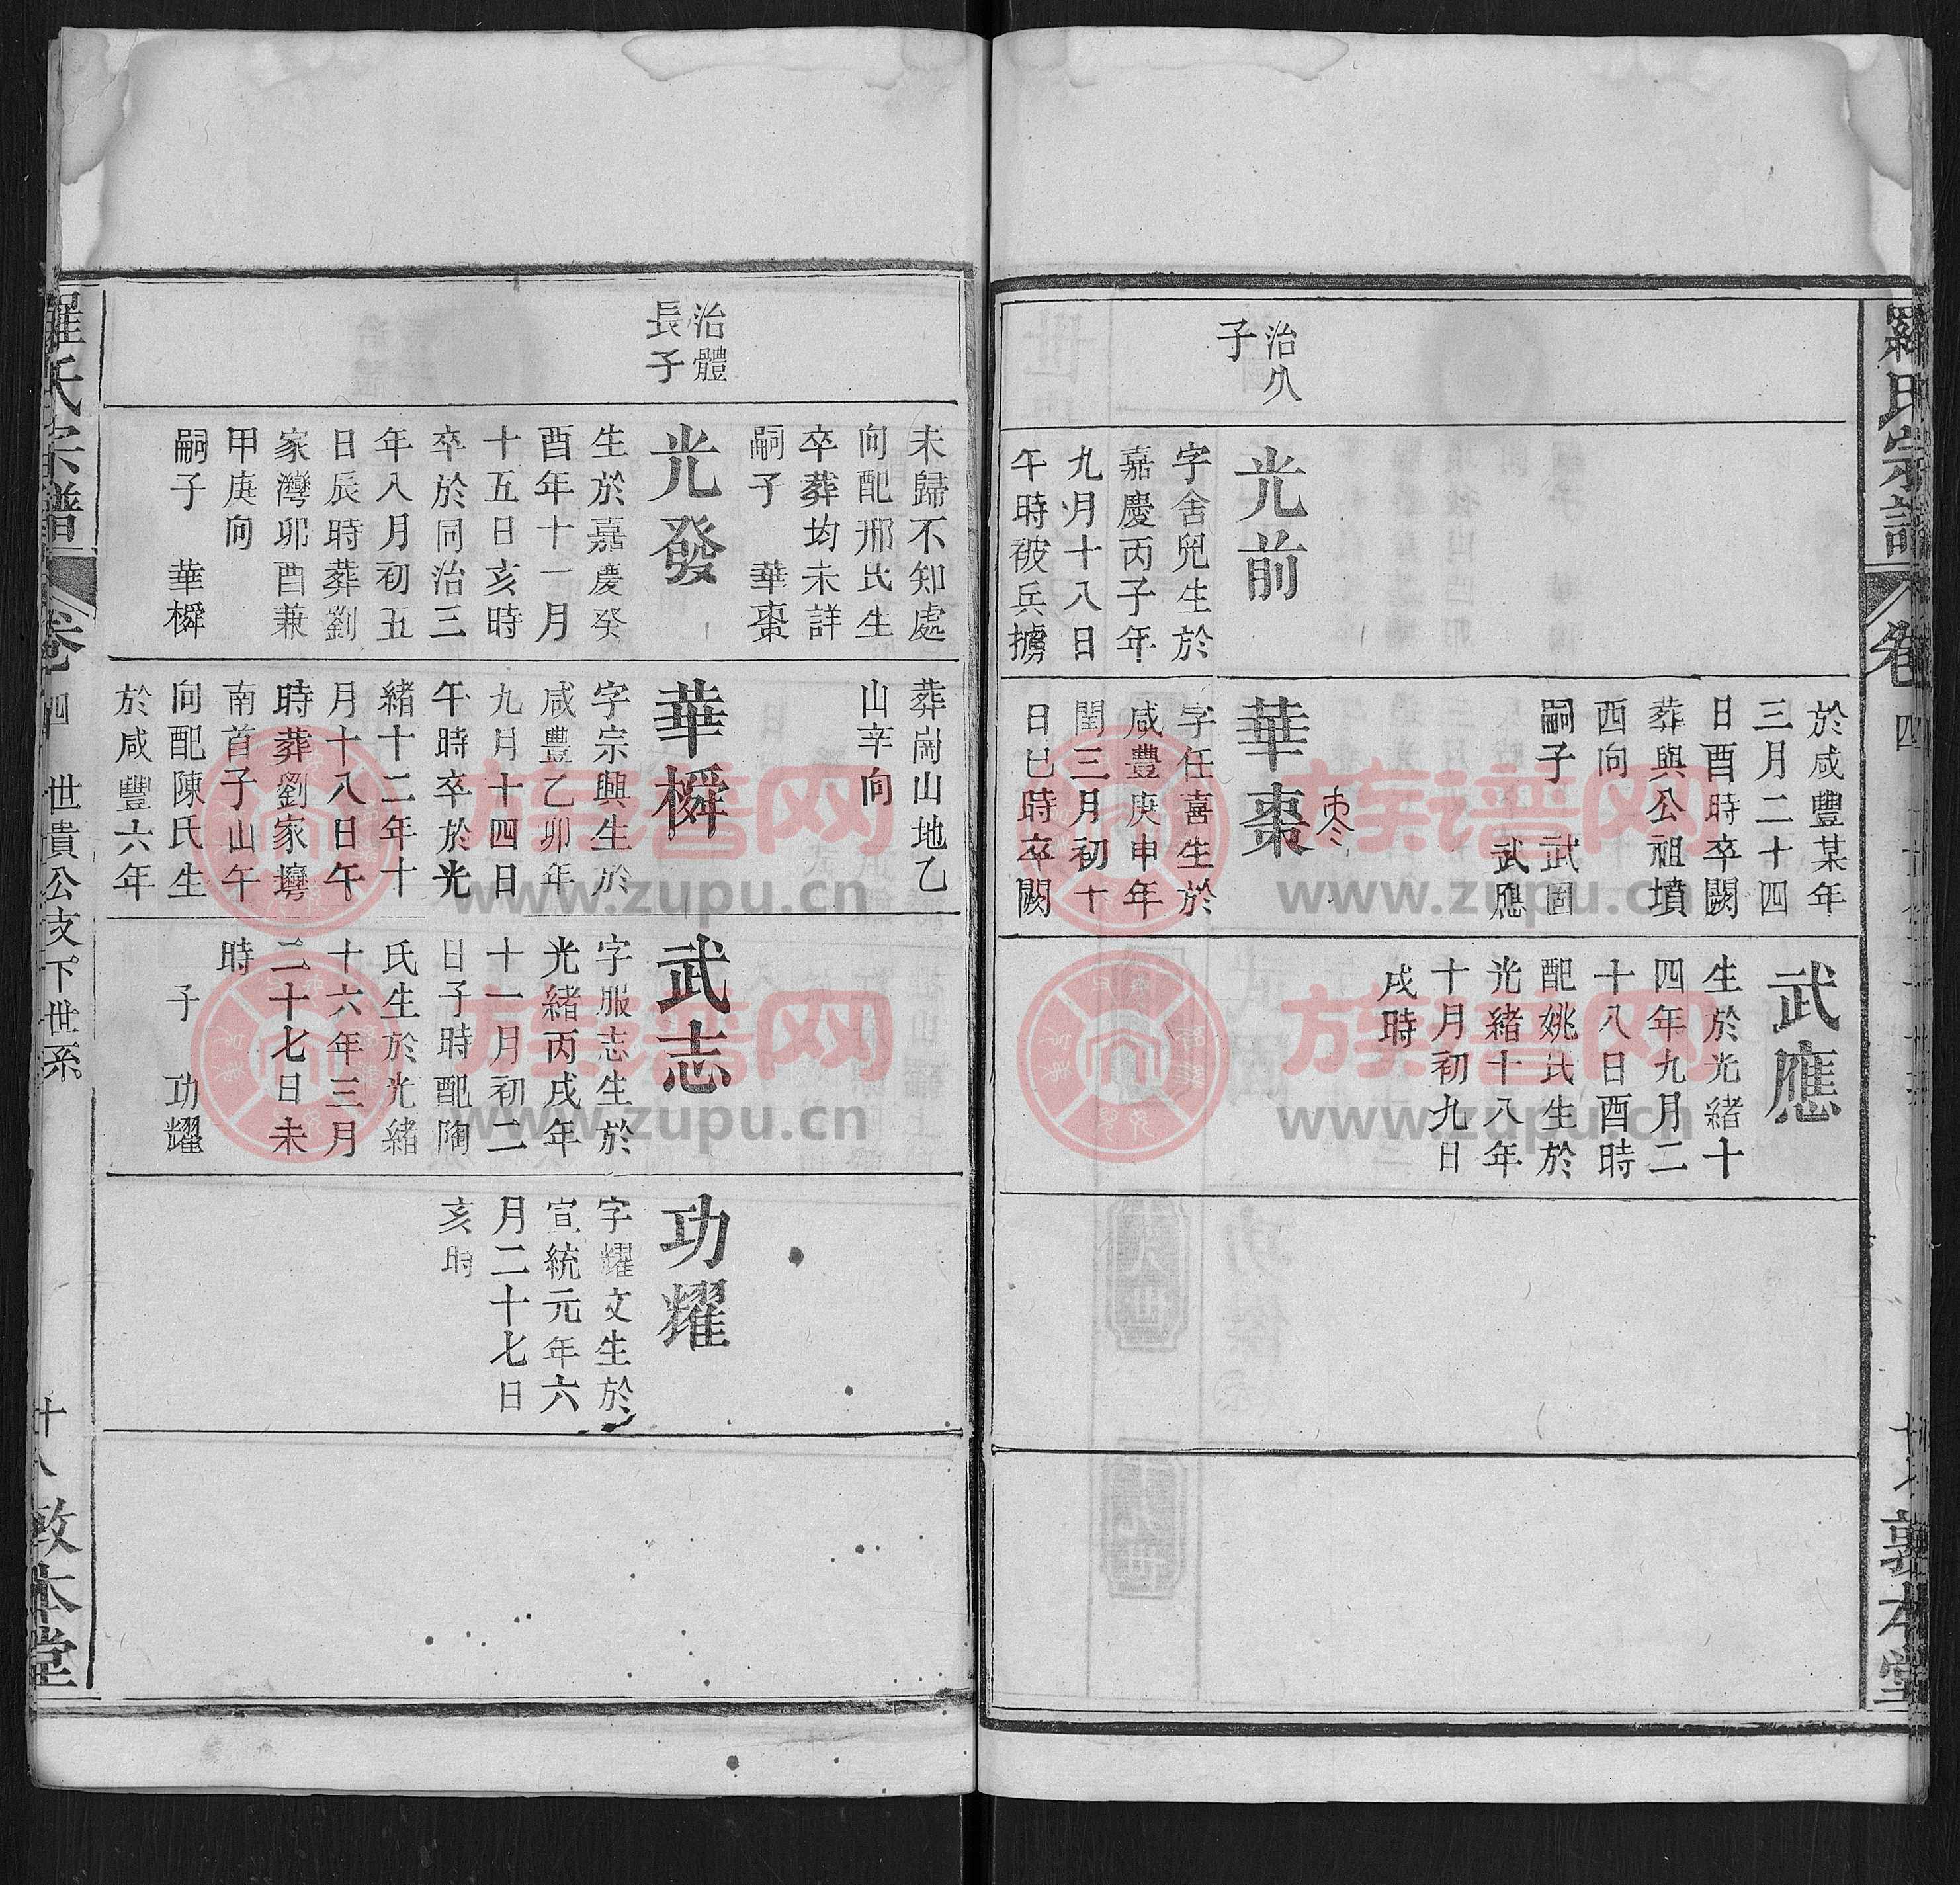 羅氏宗譜
卷四
敦本堂
治久
子
光前
字舍兒生於
嘉慶丙子年
九月十八日
午時被兵擄
於咸豐某年
三月二十四
日酉時卒闕
葬與公祖墳
西向
嗣子 武固
武應
華棗
枣
字任喜生於
咸豐庚申年
閏三月初十
日巳時卒闕
武應
生於光緒十
四年九月二
十八日酉時
配姚氏生於
光緒十八年
十月初九日
戌時
未歸不知處
向配邢氏生
卒葬均未詳
嗣子 華棗
治體
長子
光發
生於嘉慶癸
酉年十一月
十五日亥時
卒於同治三
年八月初五
日辰時葬劉
家灣卯酉兼
甲庚向
嗣子 華橓
葬崗山地乙
山辛向
華橓
字宗興生於
咸豐乙卯年
九月十四日
午時卒於光
緒十二年十
月十八日午
時葬劉家壪
南首子山午
向配陳氏生
於咸豐六年
武志
字服志生於
光緒丙戌年
十一月初二
日子時配陶
氏生於光緒
十六年三月
二十七日未
時
子 功耀
功耀
字耀文生於
宣統元年六
月二十七日
亥時
羅氏宗譜
卷四
世貴公支下世系
十八
敦本堂
族谱网
www.zupu.cn
族谱网
www.zupu.cn
族谱网
www.zupu.cn
族谱网
www.zupu.cn